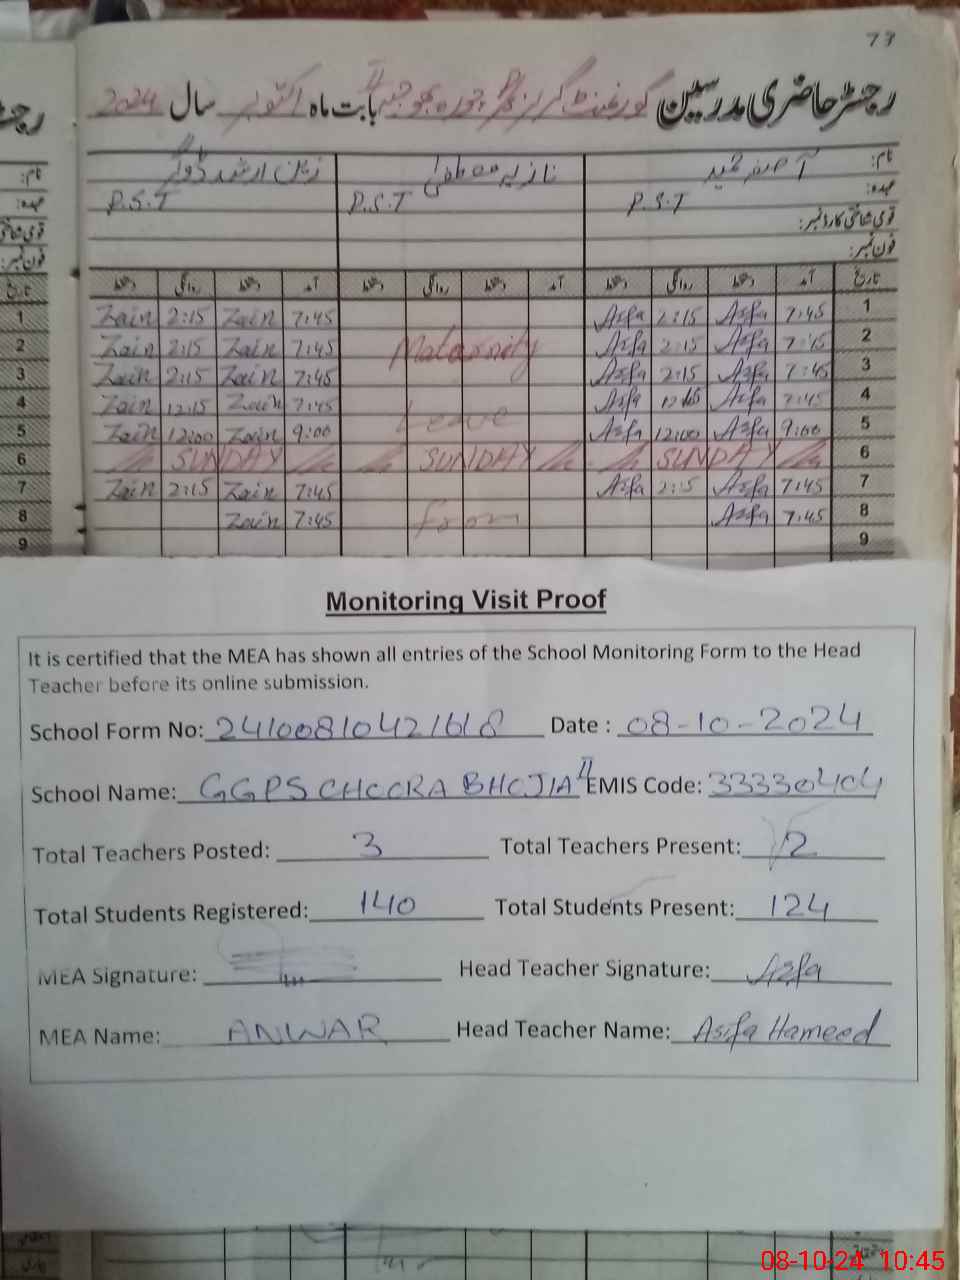 73
رجسٹر حاضری مدرسین گورنمنٹ گرلز بابت ماہ اکتوبر سال 2024
نام: آصفہ حمید نازیہ مصطفیٰ
عہدہ: P.S.T P.S.T P.S.T
قومی شناختی کارڈ نمبر:
فون نمبر:
تاریخ آمد دستخط روانگی دستخط آمد دستخط روانگی دستخط آمد دستخط روانگی دستخط
1 Zain 2:15 Zain 7:45 Asfa 2:15 Asfa 7:45 1
2 Zain 2:15 Zain 7:45 Maternity Asfa 2:15 Asfa 7:45 2
3 Zain 2:15 Zain 7:45 Asfa 2:15 Asfa 7:45 3
4 Zain 12:15 Zain 7:45 Leave Asfa 12:15 Asfa 7:45 4
5 Zain 12:00 Zain 9:00 Asfa 12:00 Asfa 9:00 5
6 SUNDAY SUNDAY SUNDAY 6
7 Zain 2:15 Zain 7:45 Asfa 2:15 Asfa 7:45 7
8 Zain 7:45 from Asfa 7:45 8
9 9
Monitoring Visit Proof
It is certified that the MEA has shown all entries of the School Monitoring Form to the Head
Teacher before its online submission.
School Form No: 24100810421618 Date : 08-10-2024
School Name: GGPS CHCCRA BHOJIA 4 EMIS Code: 33330404
Total Teachers Posted: 3 Total Teachers Present: 2
Total Students Registered: 140 Total Students Present: 124
MEA Signature: Head Teacher Signature: Asfa
MEA Name: ANWAR Head Teacher Name: Asifa Hameed
08-10-24 10:45